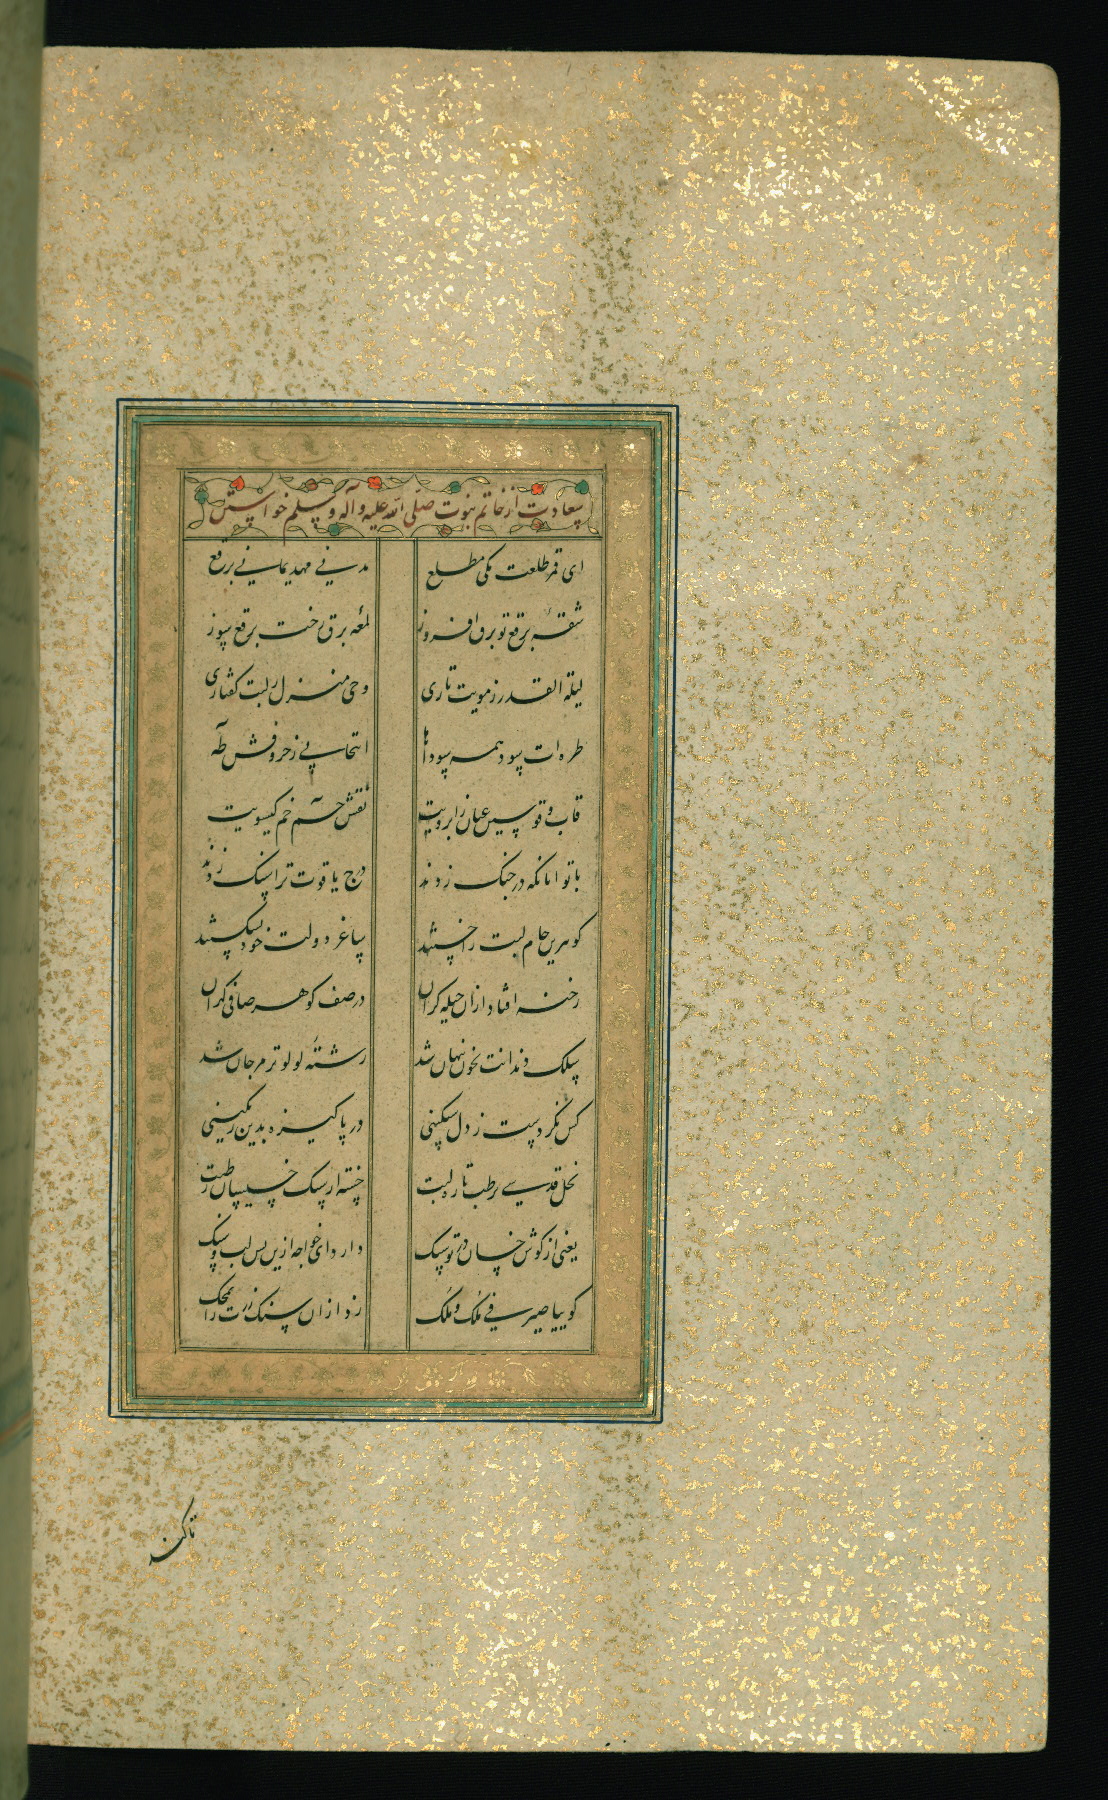 سعادت از خاتم نبوت صلی الله علیه و آله وسلم خواستن
ای قمر طلعت مکی مطلع مدنی مهد یمانی برقع
شقهٔ برقع تو برق افروز لمعه برق رخت برقع سوز
لیلة القدر ز مویت تاری وحی منزل ز لبت گفتاری
طره ات سود همه سودها انتحابی ز حروفش طه
قاب و قوسین عیان ز ابرویت نقش حم خم گیسویت
با تو آنانکه در جنک زدند درج یاقوت ترا سنک زدند
کوهرین جام لبت را خستند ساغر دولت خود بشکستند
رخنه افتاد از ان حیله کران در صف کوهر صافی کهران
سلک دندانت بخون پنهان شد رشتهٔ لولو تر مرجان شد
کس نکردست ز دل سنکینی در پاکیزه بدین رنکینی
نخل قدسی و رطب تازه لبت خسته از سنک خسیسان رطبت
یعنی از کوش خسان در تو سنک دارد ای خواجه ازین پس لب و سنک
کوییا صیرفی ملک و ملک زد از ان سنک زرت را بمحک
تا کند